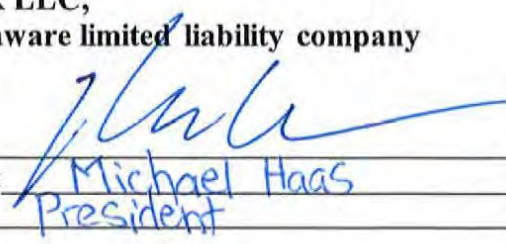 LLC,
aware limited liability company
Michael Haas
President